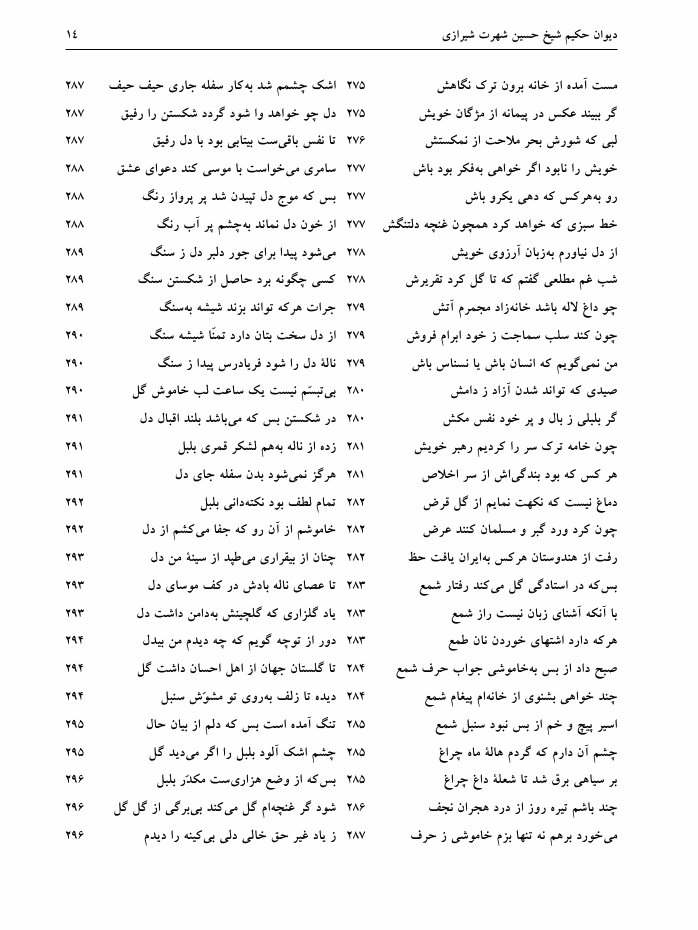 دیوان حکیم شیخ حسین شهرت شیرازی ۱۴
مست آمده از خانه برون ترک نگاهش ۲۷۵
گر ببیند عکس در پیمانه از مژگان خویش ۲۷۵
لبی که شورش بحر ملاحت از نمکستش ۲۷۶
خویش را نابود اگر خواهی به‌فکر بود باش ۲۷۷
رو به‌هرکس که دهی یکرو باش ۲۷۷
خط سبزی که خواهد کرد همچون غنچه دلتنگش ۲۷۷
از دل نیاورم به‌زبان آرزوی خویش ۲۷۸
شب غم مطلعی گفتم که تا گل کرد تقریرش ۲۷۸
چو داغ لاله باشد خانه‌زاد مجمرم آتش ۲۷۹
چون کند سلب سماجت ز خود ابرام فروش ۲۷۹
من نمی‌گویم که انسان باش یا نسناس باش ۲۷۹
صیدی که تواند شدن آزاد ز دامش ۲۸۰
گر بلبلی ز بال و پر خود نفس مکش ۲۸۰
چون خامه ترک سر را کردیم رهبر خویش ۲۸۱
هر کس که بود بندگی‌اش از سر اخلاص ۲۸۱
دماغ نیست که نکهت نمایم از گل قرض ۲۸۲
چون کرد ورد گبر و مسلمان کنند عرض ۲۸۲
رفت از هندوستان هرکس به‌ایران یافت حظ ۲۸۲
بس‌که در استادگی گل می‌کند رفتار شمع ۲۸۳
با آنکه آشنای زبان نیست راز شمع ۲۸۳
هرکه دارد اشتهای خوردن نان طمع ۲۸۳
صبح داد از بس به‌خاموشی جواب حرف شمع ۲۸۴
چند خواهی بشنوی از خانه‌ام پیغام شمع ۲۸۴
اسیر پیچ و خم از بس نبود سنبل شمع ۲۸۵
چشم آن دارم که گردم هالهٔ ماه چراغ ۲۸۵
بر سیاهی برق شد تا شعلهٔ داغ چراغ ۲۸۵
چند باشم تیره روز از درد هجران نجف ۲۸۶
می‌خورد برهم نه تنها بزم خاموشی ز حرف ۲۸۷
اشک چشمم شد به‌کار سفله جاری حیف حیف ۲۸۷
دل چو خواهد وا شود گردد شکستن را رفیق ۲۸۷
تا نفس باقی‌ست بیتابی بود با دل رفیق ۲۸۷
سامری می‌خواست با موسی کند دعوای عشق ۲۸۸
بس که موج دل تپیدن شد پر پرواز رنگ ۲۸۸
از خون دل نماند به‌چشم پر آب رنگ ۲۸۸
می‌شود پیدا برای جور دلبر دل ز سنگ ۲۸۹
کسی چگونه برد حاصل از شکستن سنگ ۲۸۹
جرات هرکه تواند بزند شیشه به‌سنگ ۲۸۹
از دل سخت بتان دارد تمنّا شیشه سنگ ۲۹۰
نالهٔ دل را شود فریادرس پیدا ز سنگ ۲۹۰
بی‌تبسّم نیست یک ساعت لب خاموش گل ۲۹۰
در شکستن بس که می‌باشد بلند اقبال دل ۲۹۱
زده از ناله به‌هم لشکر قمری بلبل ۲۹۱
هرگز نمی‌شود بدن سفله جای دل ۲۹۱
تمام لطف بود نکته‌دانی بلبل ۲۹۲
خاموشم از آن رو که جفا می‌کشم از دل ۲۹۲
چنان از بیقراری می‌طپد از سینهٔ من دل ۲۹۳
تا عصای ناله بادش در کف موسای دل ۲۹۳
یاد گلزاری که گلچینش به‌دامن داشت دل ۲۹۳
دور از توچه گویم که چه دیدم من بیدل ۲۹۴
تا گلستان جهان از اهل احسان داشت گل ۲۹۴
دیده تا زلف به‌روی تو مشوّش سنبل ۲۹۴
تنگ آمده است بس که دلم از بیان حال ۲۹۵
چشم اشک آلود بلبل را اگر می‌دید گل ۲۹۵
بس‌که از وضع هزاری‌ست مکدّر بلبل ۲۹۶
شود گر غنچه‌ام گل می‌کند بی‌برگی از گل گل ۲۹۶
ز یاد غیر حق خالی دلی بی‌کینه را دیدم ۲۹۶